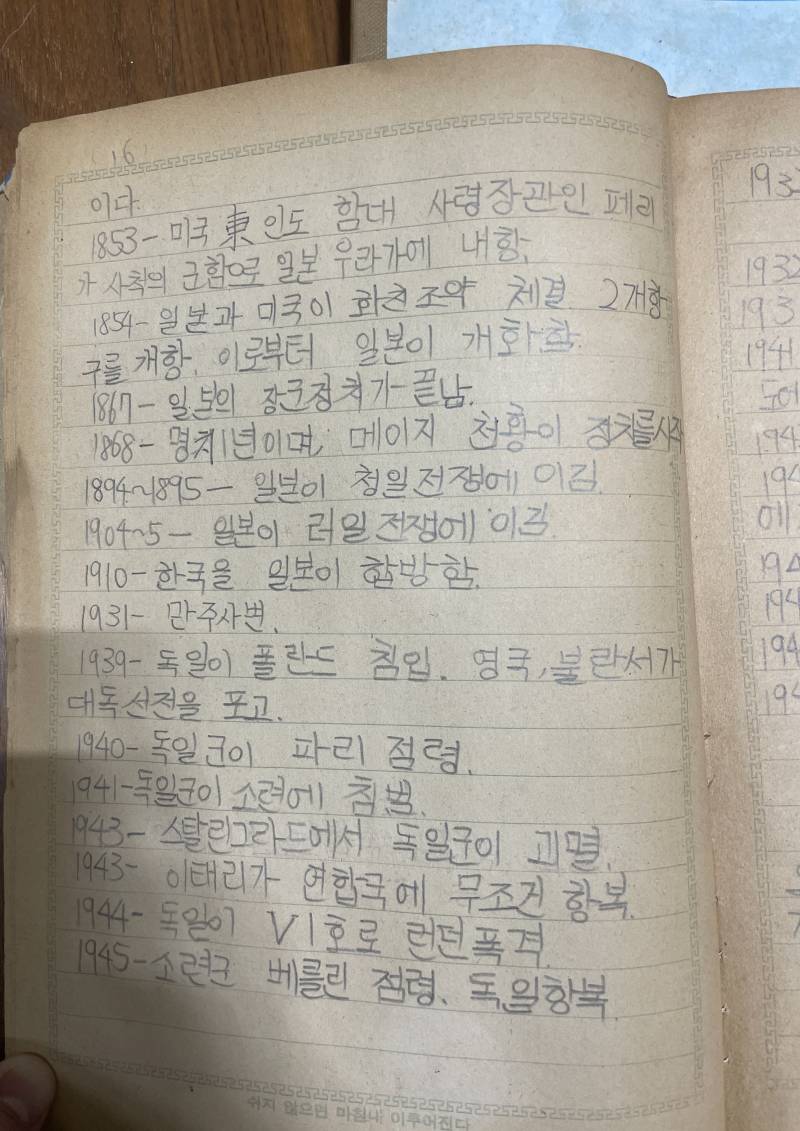 (16)
이다.
1853- 미국 東 인도 함대 사령장관인 페리
가 사척의 군함으로 일본 우라가에 내항.
1854- 일본과 미국이 화친조약 체결 2개항
구를 개항. 이로부터 일본이 개화함.
1867- 일본의 장군정치가 끝남.
1868- 명치1년이며, 메이지 천황이 정치를 시작
1894~1895- 일본이 청일전쟁에 이김.
1904~5- 일본이 러일전쟁에 이김.
1910- 한국을 일본이 합방함.
1931- 만주사변.
1939- 독일이 폴란드 침입. 영국, 불란서가
대독선전을 포고.
1940- 독일군이 파리 점령.
1941- 독일군이 소련에 침범.
1943- 스탈린그라드에서 독일군이 괴멸.
1943- 이태리가 연합국에 무조건 항복.
1944- 독일이 V1호로 런던폭격.
1945- 소련군 베를린 점령. 독일항복.
쉬지 않으면 마침내 이루어진다
193
1932
193
1941
도어
194
194
에
194
194
194
194